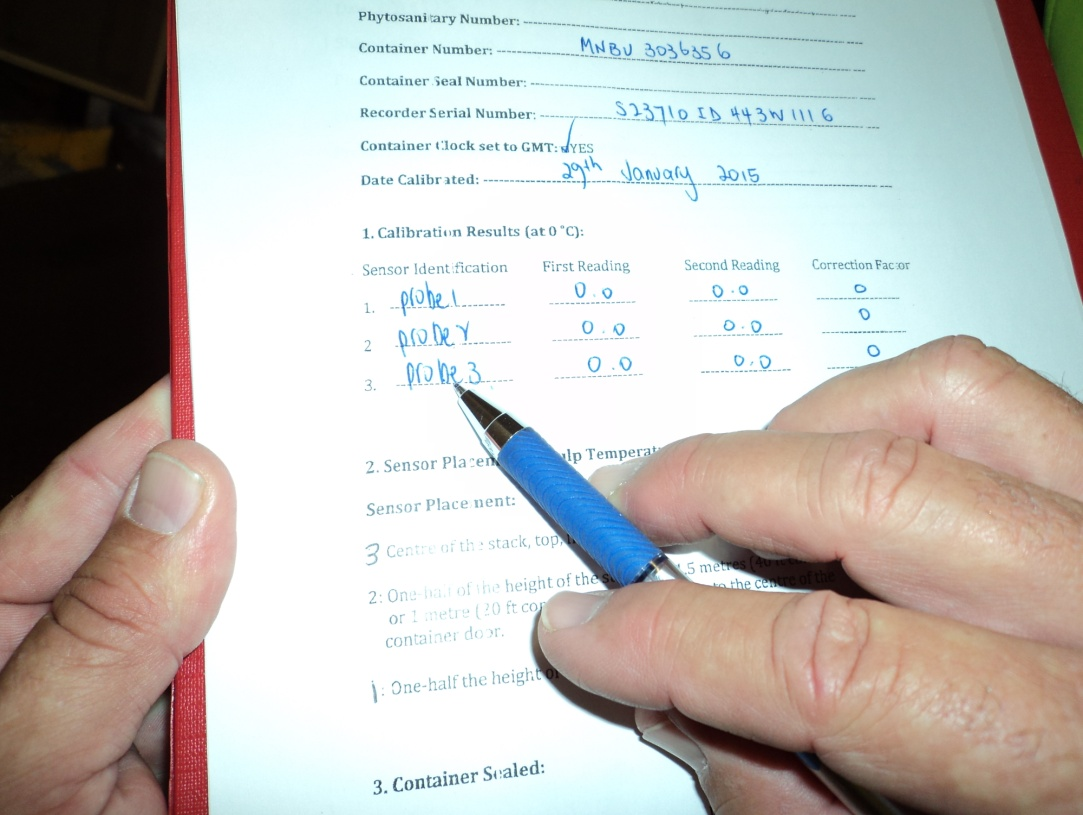 Phytosanitary Number:
Container Number: MNBU 3036356
Container Seal Number:
Recorder Serial Number: S23710 ID 443W1116
Container Clock set to GMT: YES
Date Calibrated: 29th January 2015
1. Calibration Results (at 0 °C):
Sensor Identification First Reading Second Reading Correction Factor
1. probe 1 0.0 0.0 0
2 probe 0.0 0.0 0
3. probe 3 0.0 0.0 0
2. Sensor Temperat
Sensor Placement:
3 Centre of the stack, top,
2: One-half of the height of the .5 metres (40 ft
or 1 metre (20 ft to the centre of the
container door.
1: One-half the height of
3. Container Sealed: